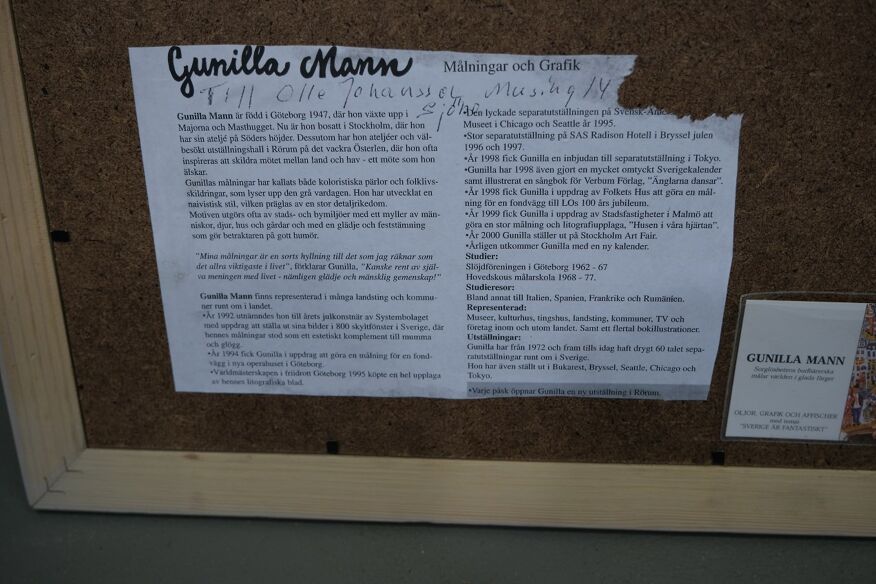 Gunilla Mann
Målningar och Grafik
Till Olle Johansson
Gunilla Mann är född i Göteborg 1947, där hon växte upp i
Majorna och Masthugget. Nu är hon bosatt i Stockholm, där hon
har sin ateljé på Söders höjder. Dessutom har hon ateljéer och väl-
besökt utställningshall i Rörum på det vackra Österlen, där hon ofta
inspireras att skildra mötet mellan land och hav - ett möte som hon
älskar.
Gunillas målningar har kallats både koloristiska pärlor och folklivs-
skildringar, som lyser upp den grå vardagen. Hon har utvecklat en
naivistisk stil, vilken präglas av en stor detaljrikedom.
Motiven utgörs ofta av stads- och bymiljöer med ett myller av män-
niskor, djur, hus och gårdar och med en glädje och feststämning
som gör betraktaren på gott humör.
"Mina målningar är en sorts hyllning till det som jag räknar som
det allra viktigaste i livet", förklarar Gunilla, "Kanske rent av själ-
va meningen med livet - nämligen glädje och mänsklig gemenskap!"
Gunilla Mann finns representerad i många landsting och kommu-
ner runt om i landet.
•År 1992 utnämndes hon till årets julkonstnär av Systembolaget
med uppdrag att ställa ut sina bilder i 800 skyltfönster i Sverige, där
hennes målningar stod som ett estetiskt komplement till mumma
och glögg.
•År 1994 fick Gunilla i uppdrag att göra en målning för en fond-
vägg i nya operahuset i Göteborg.
•Världsmästerskapen i friidrott Göteborg 1995 köpte en hel upplaga
av hennes litografiska blad.
•Den lyckade separatutställningen på Svensk-
Museet i Chicago och Seattle år 1995.
•Stor separatutställning på SAS Radison Hotell i Bryssel julen
1996 och 1997.
•År 1998 fick Gunilla en inbjudan till separatutställning i Tokyo.
•Gunilla har 1998 även gjort en mycket omtyckt Sverigekalender
samt illustrerat en sångbok för Verbum Förlag, "Änglarna dansar".
•År 1998 fick Gunilla i uppdrag av Folkets Hus att göra en mål-
ning för en fondvägg till LOs 100 års jubileum.
•År 1999 fick Gunilla i uppdrag av Stadsfastigheter i Malmö att
göra en stor målning och litografiupplaga, "Husen i våra hjärtan".
•År 2000 Gunilla ställer ut på Stockholm Art Fair.
•Årligen utkommer Gunilla med en ny kalender.
Studier:
Slöjdföreningen i Göteborg 1962 - 67
Hovedskous målarskola 1968 - 77.
Studieresor:
Bland annat till Italien, Spanien, Frankrike och Rumänien.
Representerad:
Museer, kulturhus, tingshus, landsting, kommuner, TV och
företag inom och utom landet. Samt ett flertal bokillustrationer.
Utställningar:
Gunilla har från 1972 och fram tills idag haft drygt 60 talet sepa-
ratutställningar runt om i Sverige.
Hon har även ställt ut i Bukarest, Bryssel, Seattle, Chicago och
Tokyo.
•Varje påsk öppnar Gunilla en ny utställning i Rörum.
GUNILLA MANN
Sorglöshetens budbärerska
målar världen i glada färger
OLJOR, GRAFIK OCH AFFISCHER
med temat
"SVERIGE ÄR FANTASTISKT"